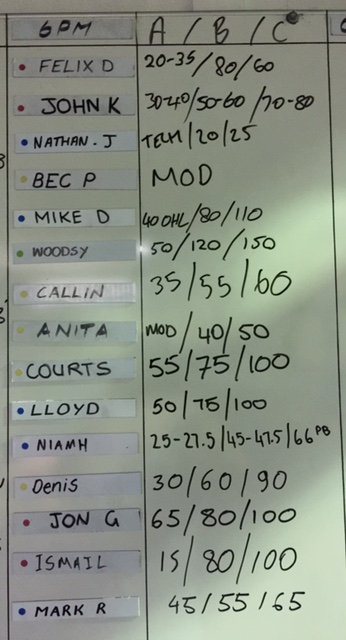 6PM A / B / C
FELIX D 20-35/80/60
JOHN K 30-40/50-60/70-80
NATHAN.J TECH/20/25
BEC P MOD
MIKE D 40 OHL/80/110
WOODSY 50/120/150
CALLIN 35/55/60
ANITA MOD/40/50
COURTS 55/75/100
LLOYD 50/75/100
NIAMH 25-27.5/45-47.5/66 PB
Denis 30/60/90
JON G 65/80/100
ISMAIL 15/80/100
MARK R 45/55/65